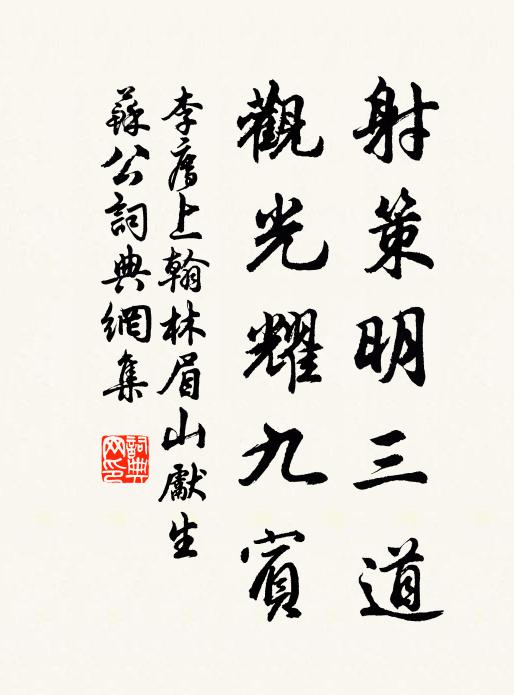 射策明三道
觀光耀九賓
李廌上翰林眉山獻生
蘇公詞典網集
詞典网印